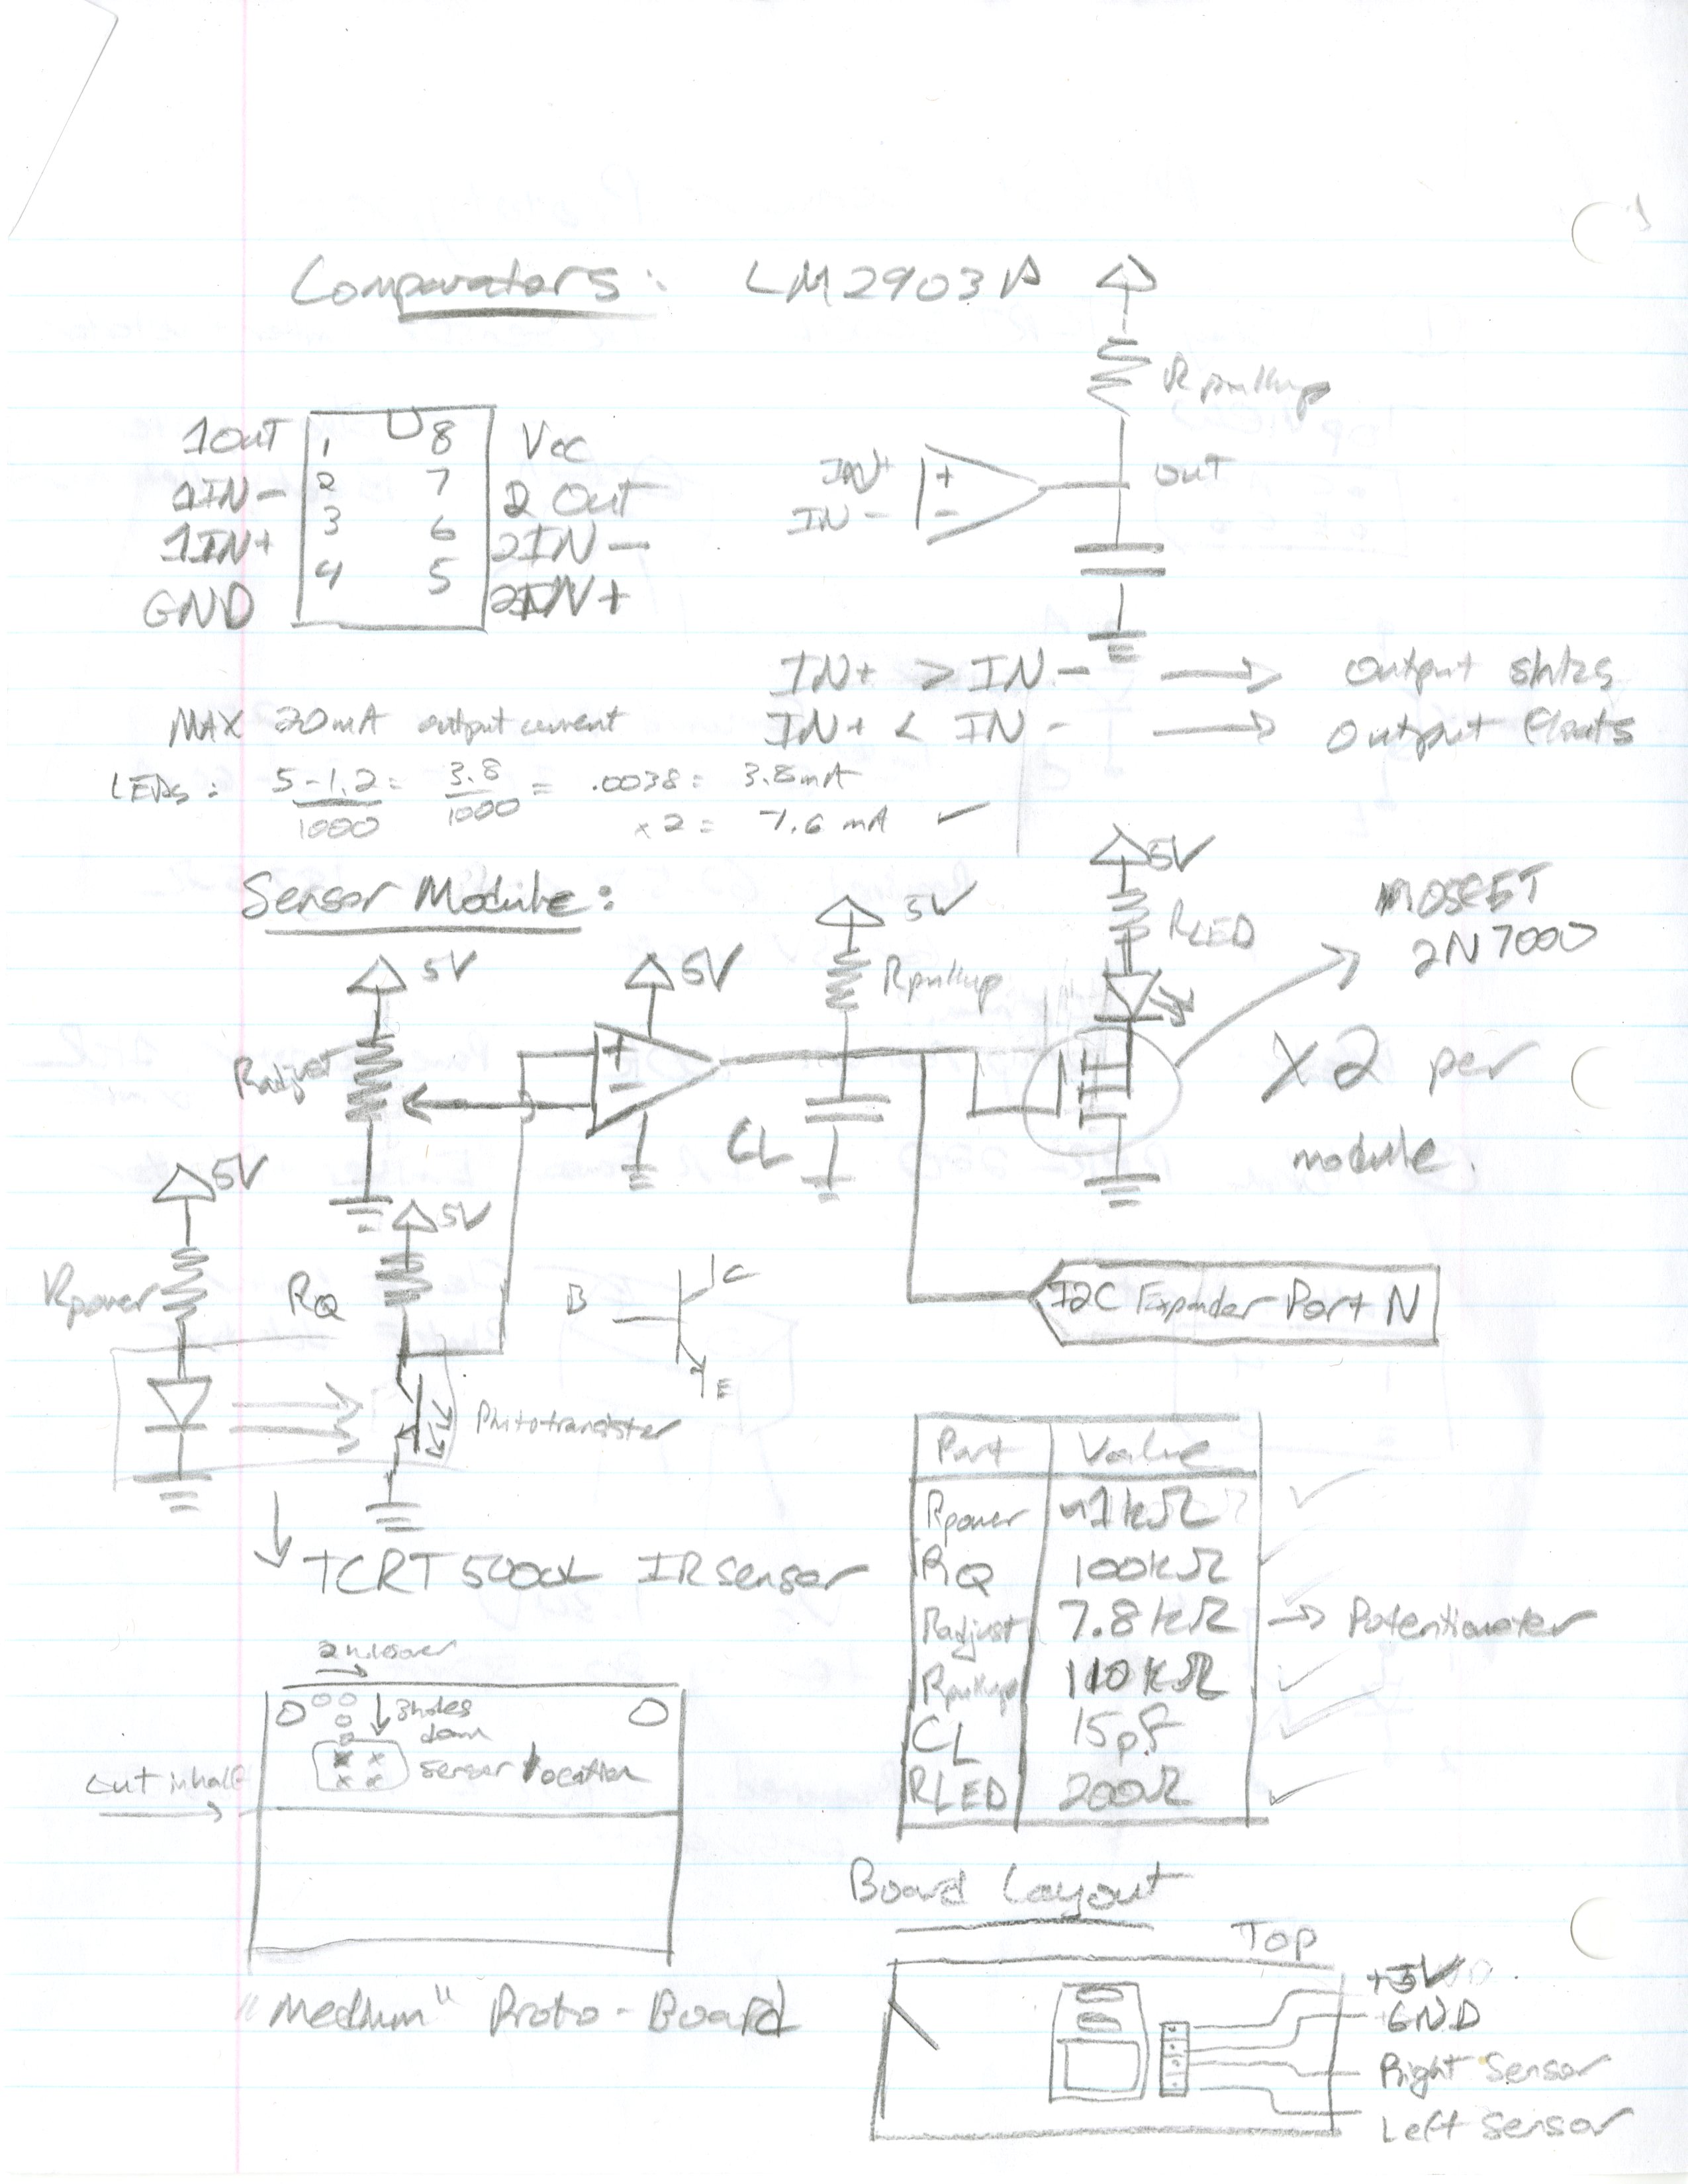 Comparators: LM2903P
Rpullup
1OUT 1 8 Vcc
1IN- 2 7 2 Out
1IN+ 3 6 2IN-
GND 4 5 2IN+
IN+ +
IN- -
out
IN+ > IN- → Output sinks
IN+ < IN- → Output floats
MAX 20mA output current
LEDs: 5-1.2/1000 = 3.8/1000 = .0038 = 3.8mA
x2 = 7.6 mA ✓
Sensor Module:
5V
RLED
MOSFET
2N7000
5V
Rpullup
5V
5V
Radjust
+
-
CL
X2 per
module.
5V
Rpower
5V
RQ
B
C
E
I2C Expander Port N
Phototransistor
TCRT5000L IR sensor
Part Value
Rpower ~1kΩ ✓
RQ 100kΩ ✓
Radjust 7.8kΩ → Potentiometer
Rpullup 110kΩ ✓
CL 15pF ✓
RLED 200Ω ✓
3 holes
down
sensor location
cut in half
"Medium" Proto-Board
Board Layout
Top
+5V
GND
Right Sensor
Left Sensor